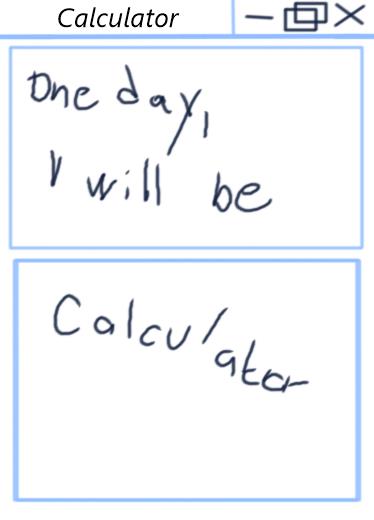 Calculator
One day,
I will be
Calculator